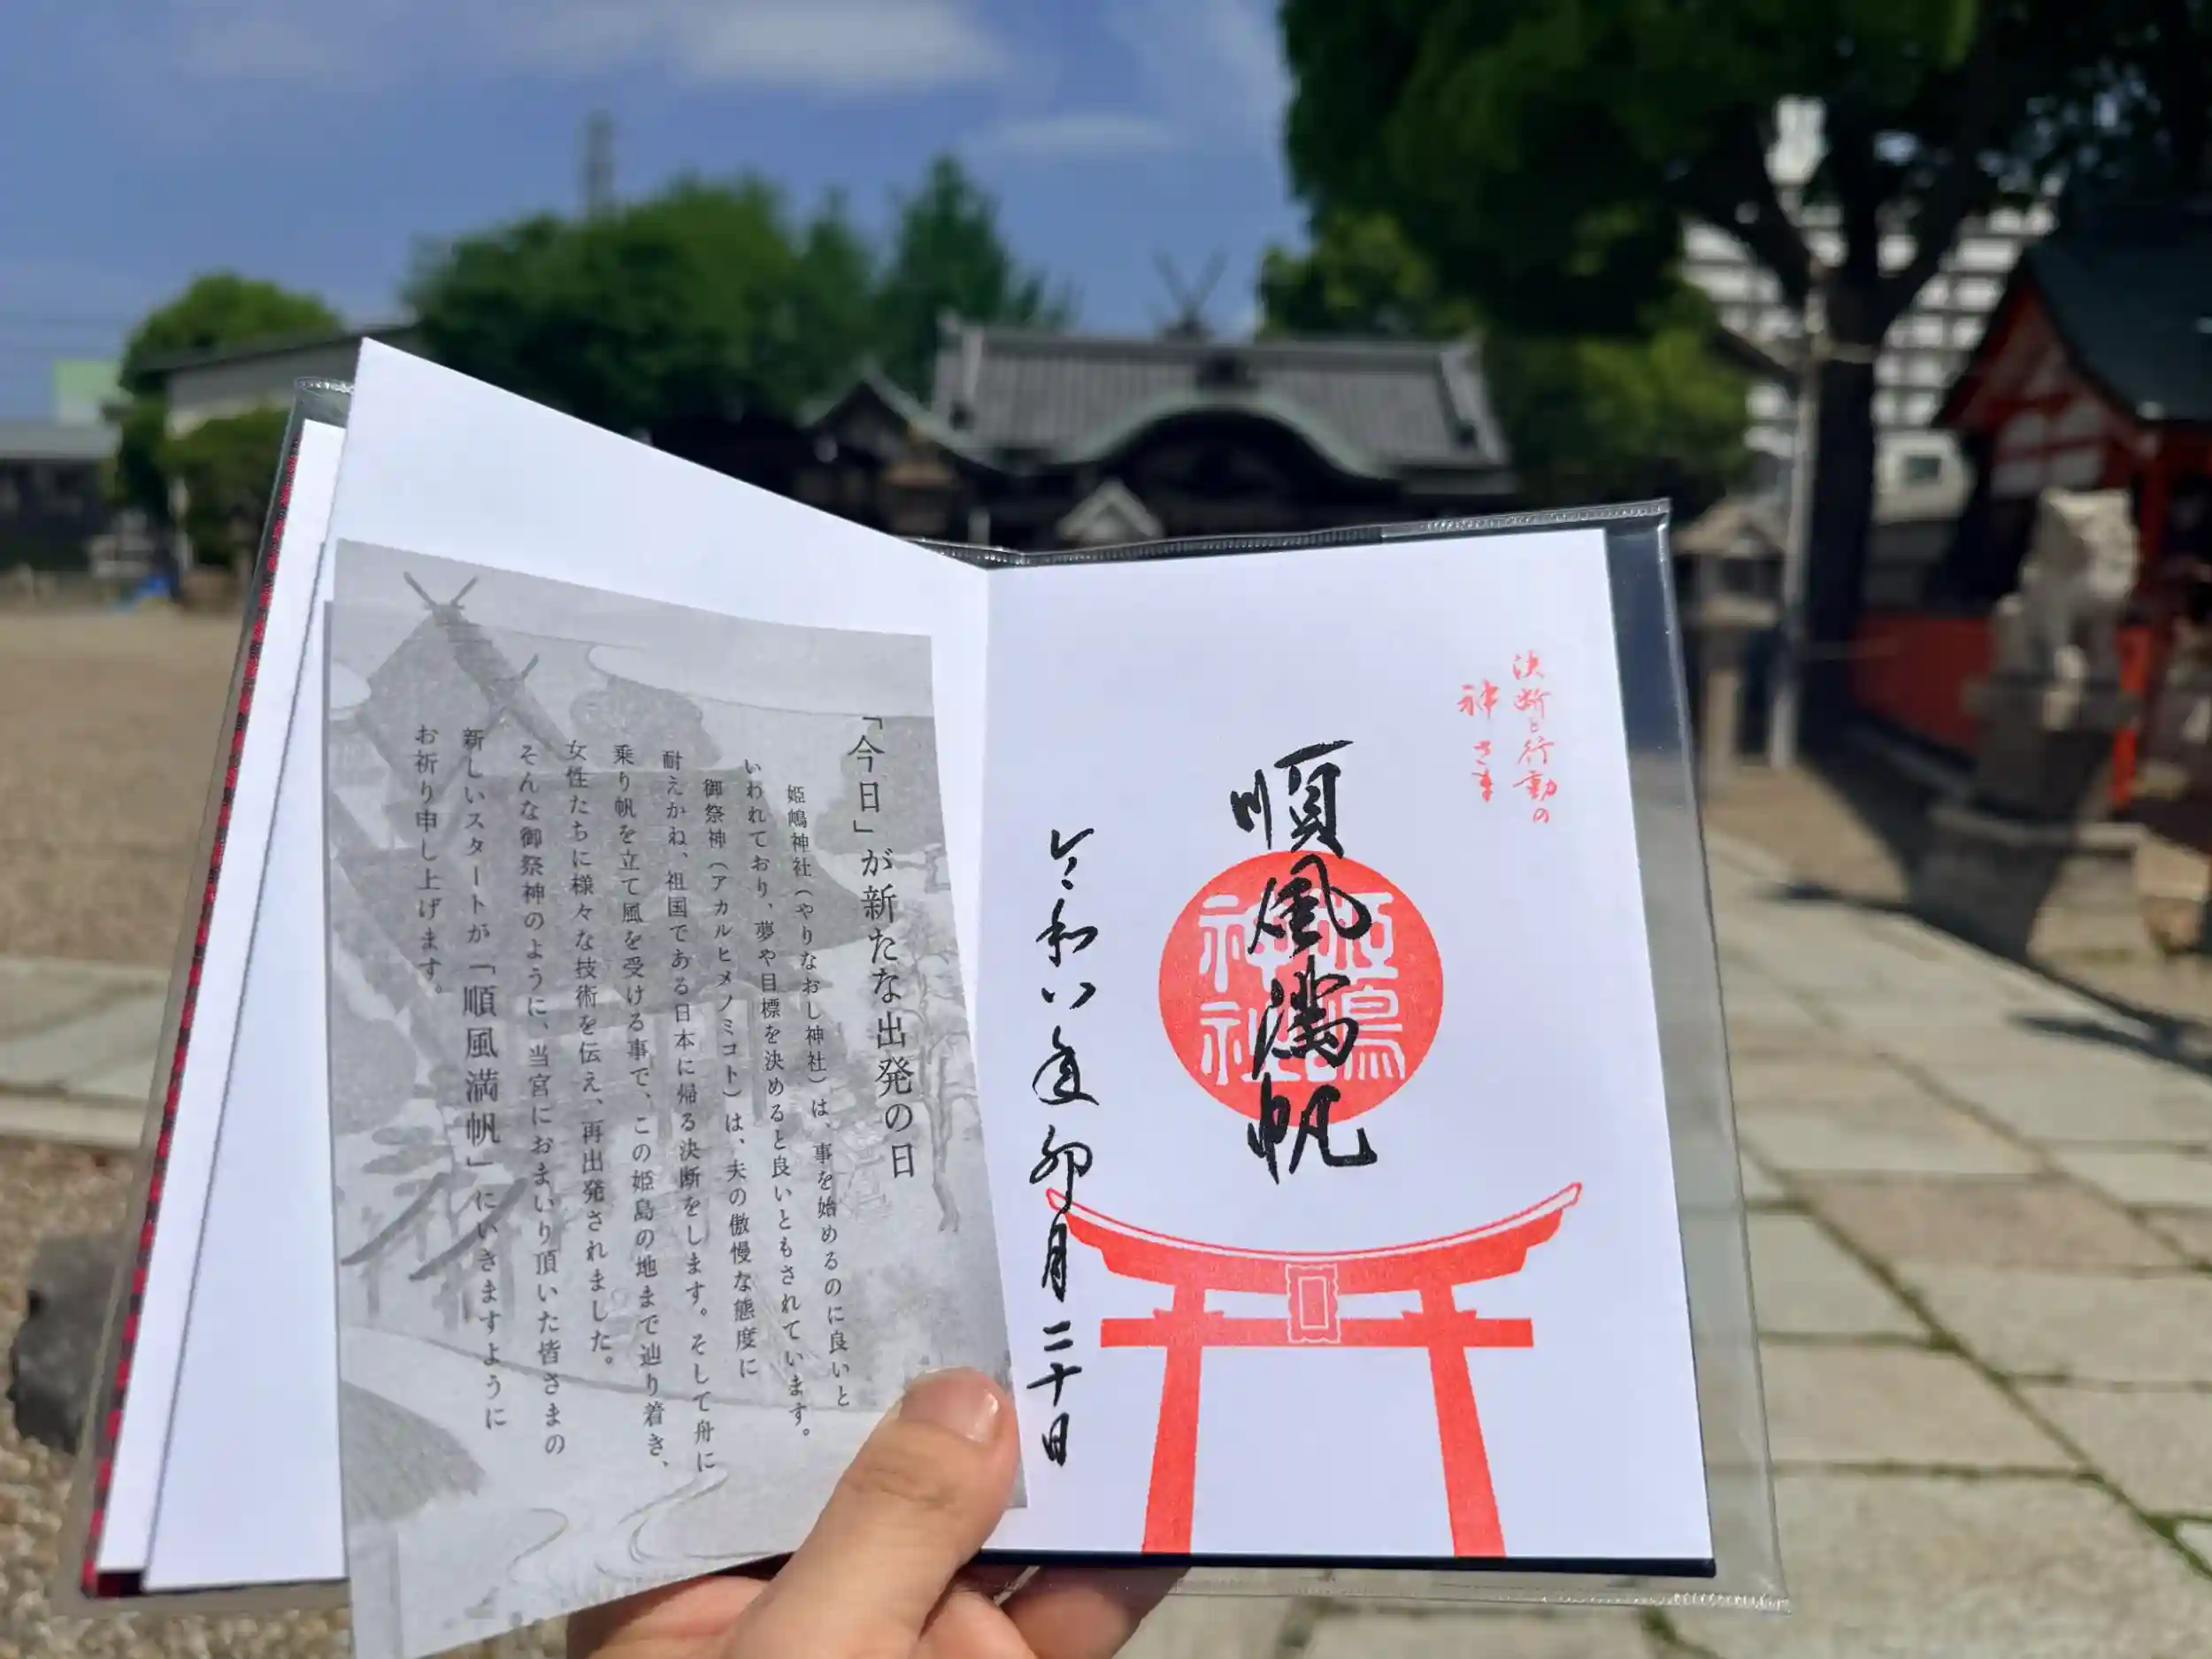 決断と行動の
神さま
順風満帆
姫嶋
神社
令和八年卯月二十日
「今日」が新たな出発の日
姫嶋神社（やりなおし神社）は、事を始めるのに良いと
いわれており、夢や目標を決めると良いともされています。
御祭神（アカルヒメノミコト）は、夫の傲慢な態度に
耐えかね、祖国である日本に帰る決断をします。そして舟に
乗り帆を立て風を受ける事で、この姫島の地まで辿り着き、
女性たちに様々な技術を伝え、再出発されました。
そんな御祭神のように、当宮におまいり頂いた皆さまの
新しいスタートが「順風満帆」にいきますように
お祈り申し上げます。